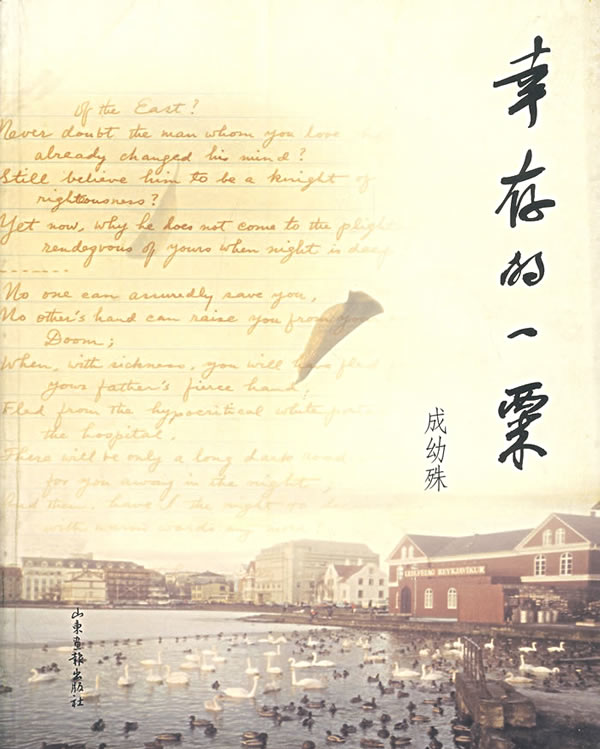 幸存的一粟
成幼殊
of the East?
Never doubt the man whom you love he
already changed his mind?
Still believe him to be a knight of
rightousness?
Yet now, why he does not come to the plight
rendezvous of yours when night is deep
-------
No one can assuredly save you,
No other's hand can raise you from your
Doom;
When, with sickness, you will have fled
yours father's fierce hand,
Fled from the hypocritical white
the hospital,
There will be only a long dark road
for you away in the night,
And then, have I the right to
with warm words any more?
LEIKFELAG REYKJAVIKUR
山东画报出版社